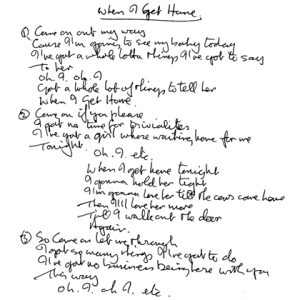 When I Get Home
① Come on out my way
Cause I'm going to see my baby today
I've got a whole lotta things I've got to say
To her
oh. I. oh. I
Got a whole lot of things to tell her
When I Get Home.
② Come on if you please
I got no time for trivialities
I've got a girl whose waiting home for me
Tonight.
oh. I. etc.
When I get home tonight
I gonna hold her tight
I'm gonna love her till the cows come home
Then I'll love her more
Till I walk out the door
Again.
③ So Come on let me through
I got so many things I've got to do
I've got no business being here with you
This way
oh. I. oh I. etc.